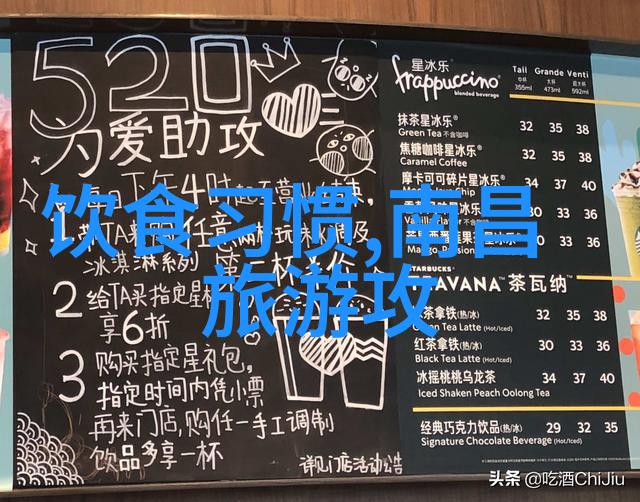 520
为爱助攻
下午4时起至营业结束,
1
任意
冰淇淋系列 第
2 给TA买指定星
享6折
3 购买指定星礼包,
指定时间内凭小票
再来门店,购任一手工调制
饮品多享一杯
详见门店活动公告
饮食习惯,南昌
旅游攻
星冰乐®
frappuccino®
blended beverage
Tall Grande Venti
中杯 大杯 超大杯
355ml 473ml 592ml
抹茶星冰乐®
Green Tea 不含咖啡 32 35 38
焦糖咖啡星冰乐®
Caramel Coffee 32 35 38
摩卡可可碎片星冰乐®
34 37 40
星冰乐®
不含咖啡 30 33 36
33 36
STARBUCKS®
TEAVANA™ 茶瓦纳™
茶拿铁(热/冰)
Green Tea Latte (Hot/Iced) 32 35 38
红茶拿铁(热/冰)
Black Tea Latte (Hot/Iced) 30 33 36
冰摇桃桃乌龙茶
Iced Shaken Peach Oolong Tea 34 37 40
经典巧克力饮品(热/冰)
Signature Chocolate Beverage (Hot/Iced) 29 32 35
头条 @吃酒ChiJiu